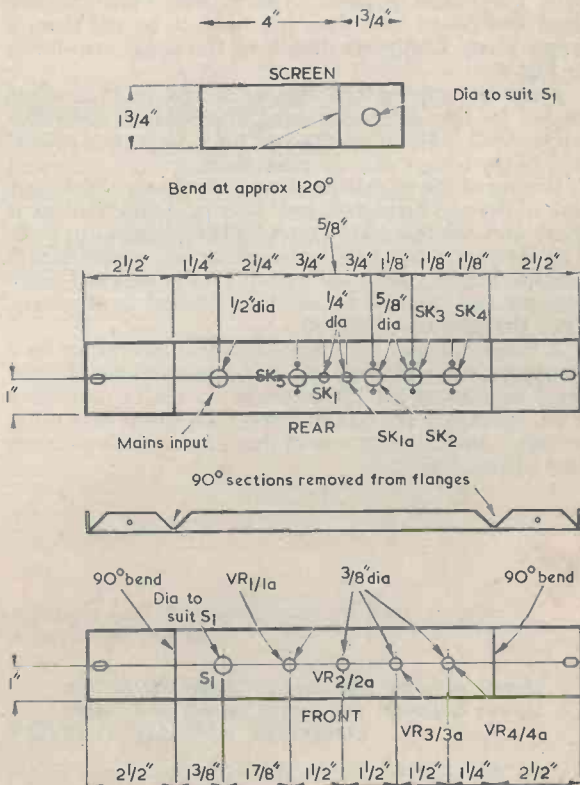 4" 1 3/4"
SCREEN
Dia to suit S1
1 3/4"
Bend at approx 120°
5/8"
2 1/2" 1 1/4" 2 1/4" 3/4" 3/4" 1 1/8" 1 1/8" 1 1/8" 2 1/2"
1/2" dia 1/4" dia 5/8" dia SK3 SK4
SK5
SK1
1"
Mains input REAR SK1a SK2
90° sections removed from flanges
90° bend VR1/1a 3/8" dia 90° bend
Dia to suit S1
S1 VR2/2a
1"
FRONT
VR3/3a VR4/4a
2 1/2" 1 3/8" 1 7/8" 1 1/2" 1 1/2" 1 1/2" 1 1/4" 2 1/2"